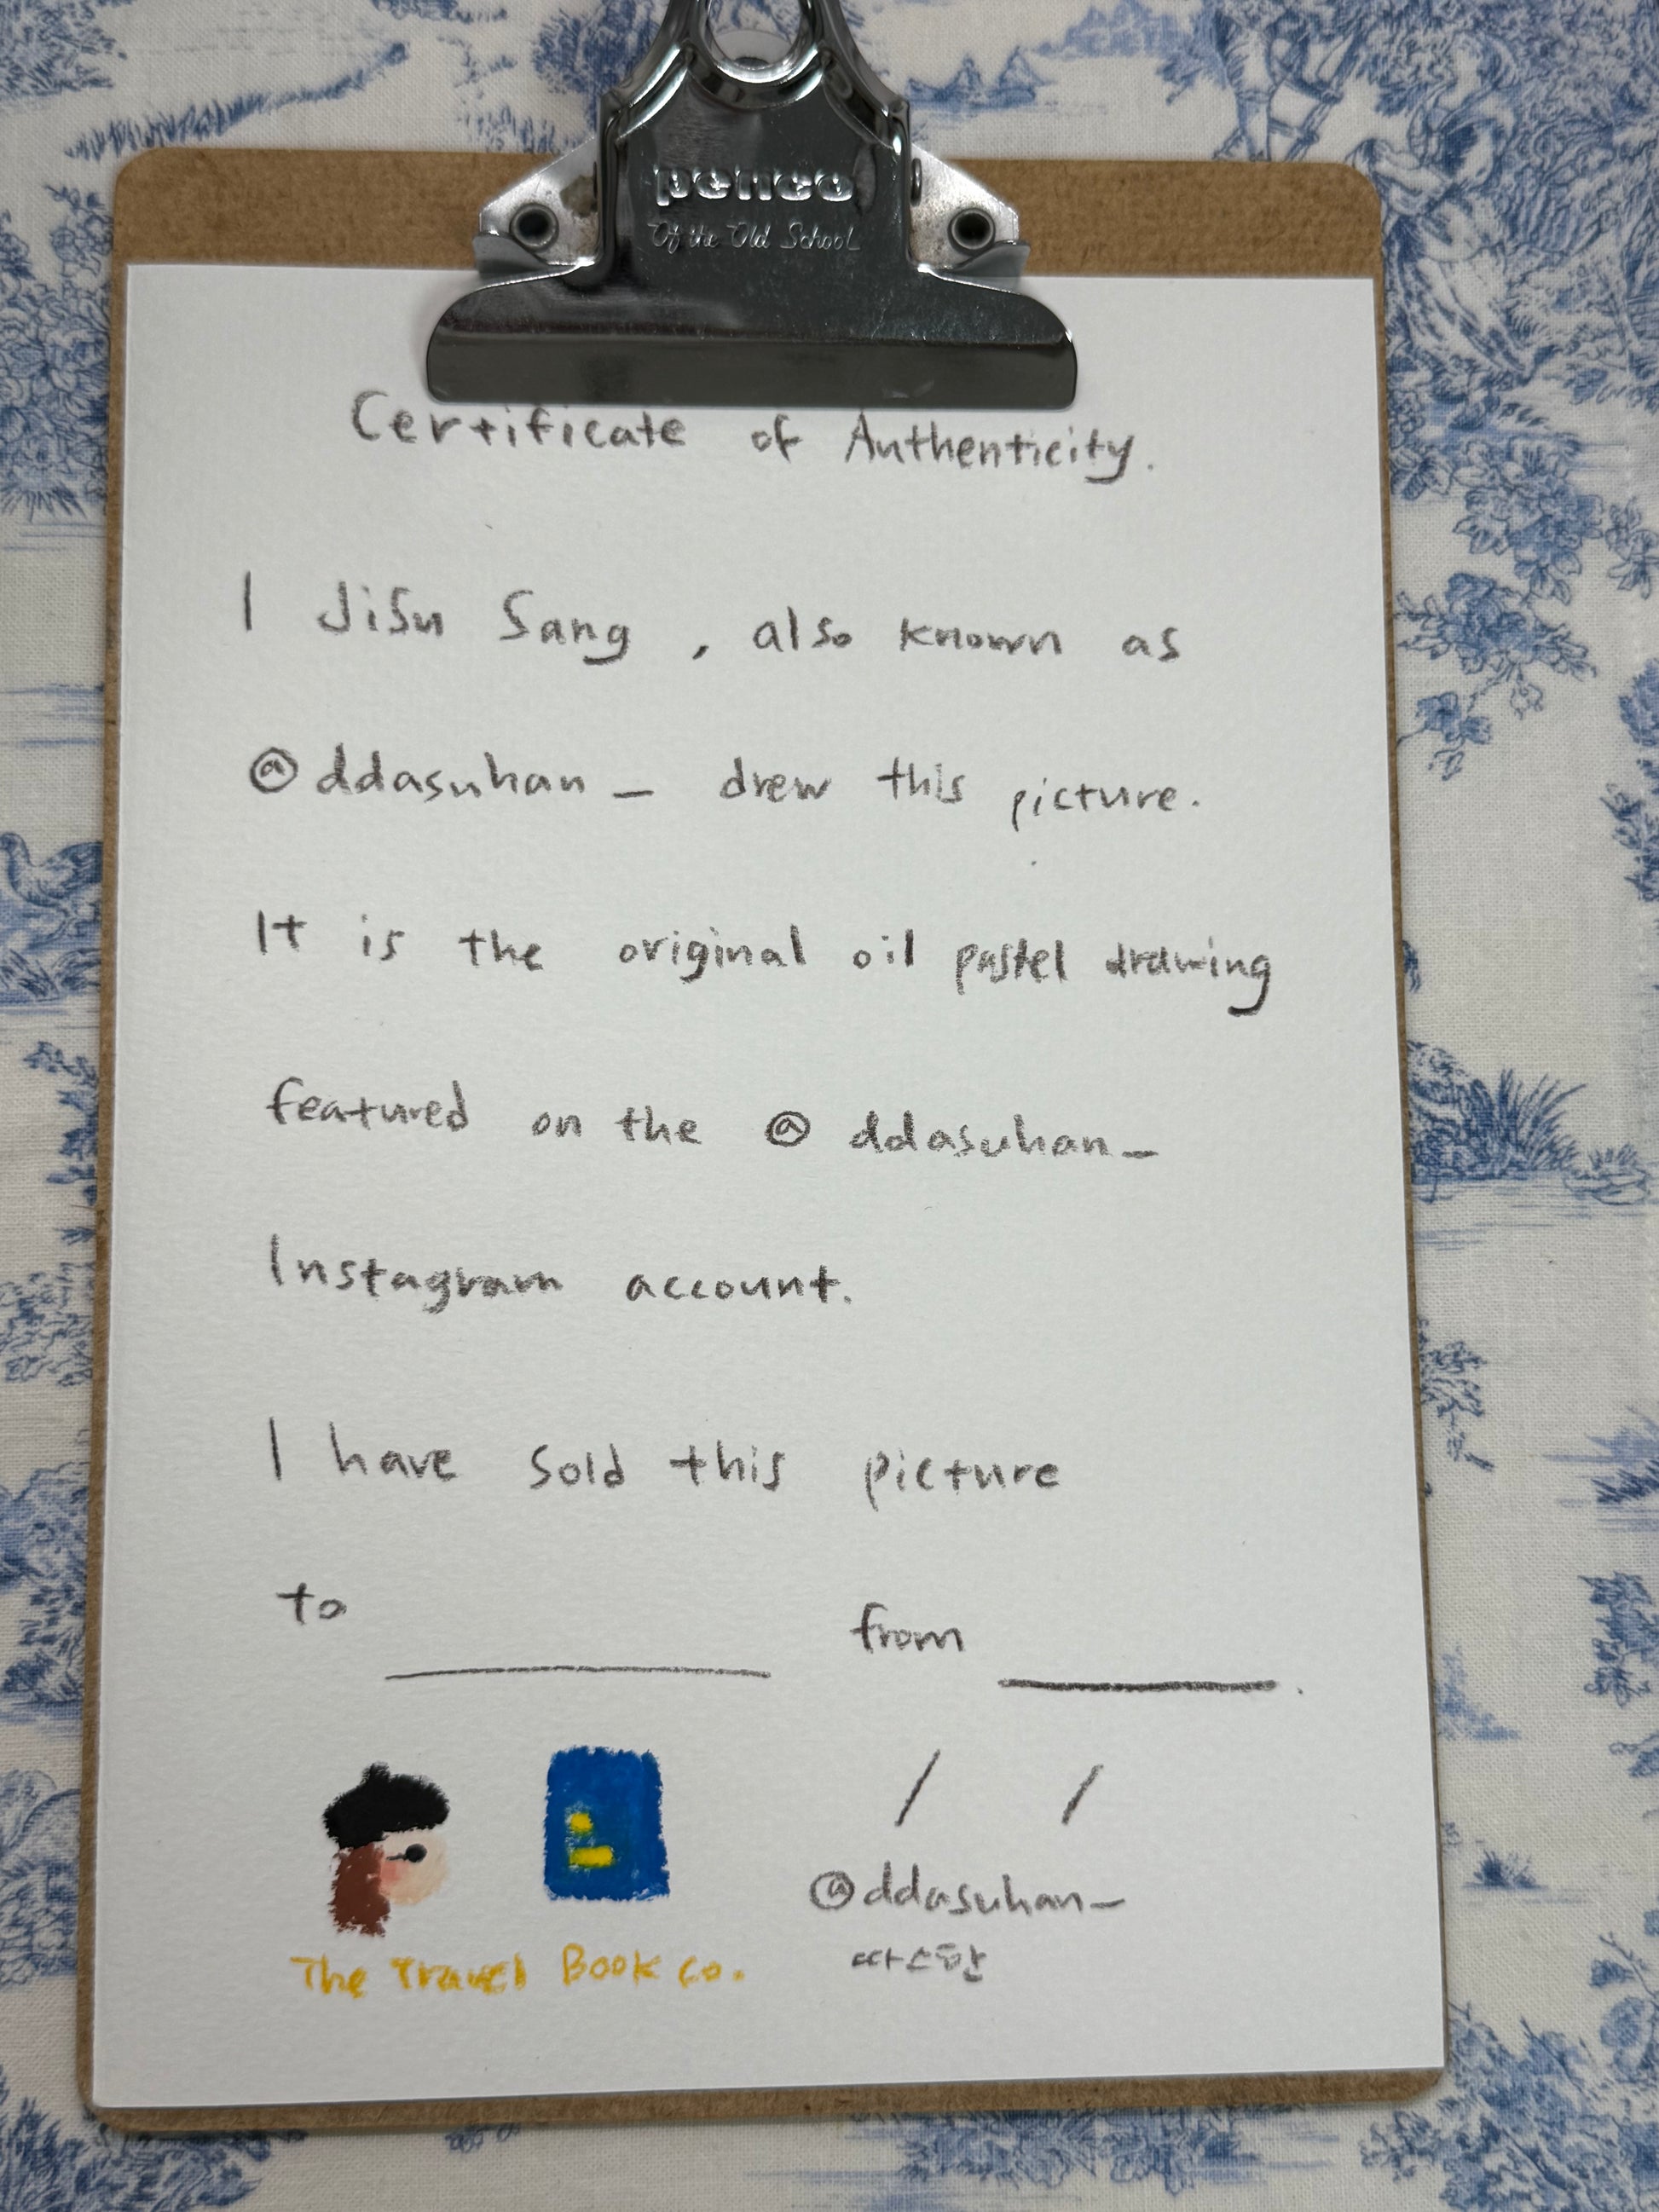 penco
Of the Old School
Certificate of Authenticity.
I JiSu Sang, also known as
@ddasuhan_ drew this picture.
It is the original oil pastel drawing
featured on the @ddasuhan_
Instagram account.
I have sold this picture
to ________ from ________.
/ /
@ddasuhan_
따스한
The Travel Book Co.